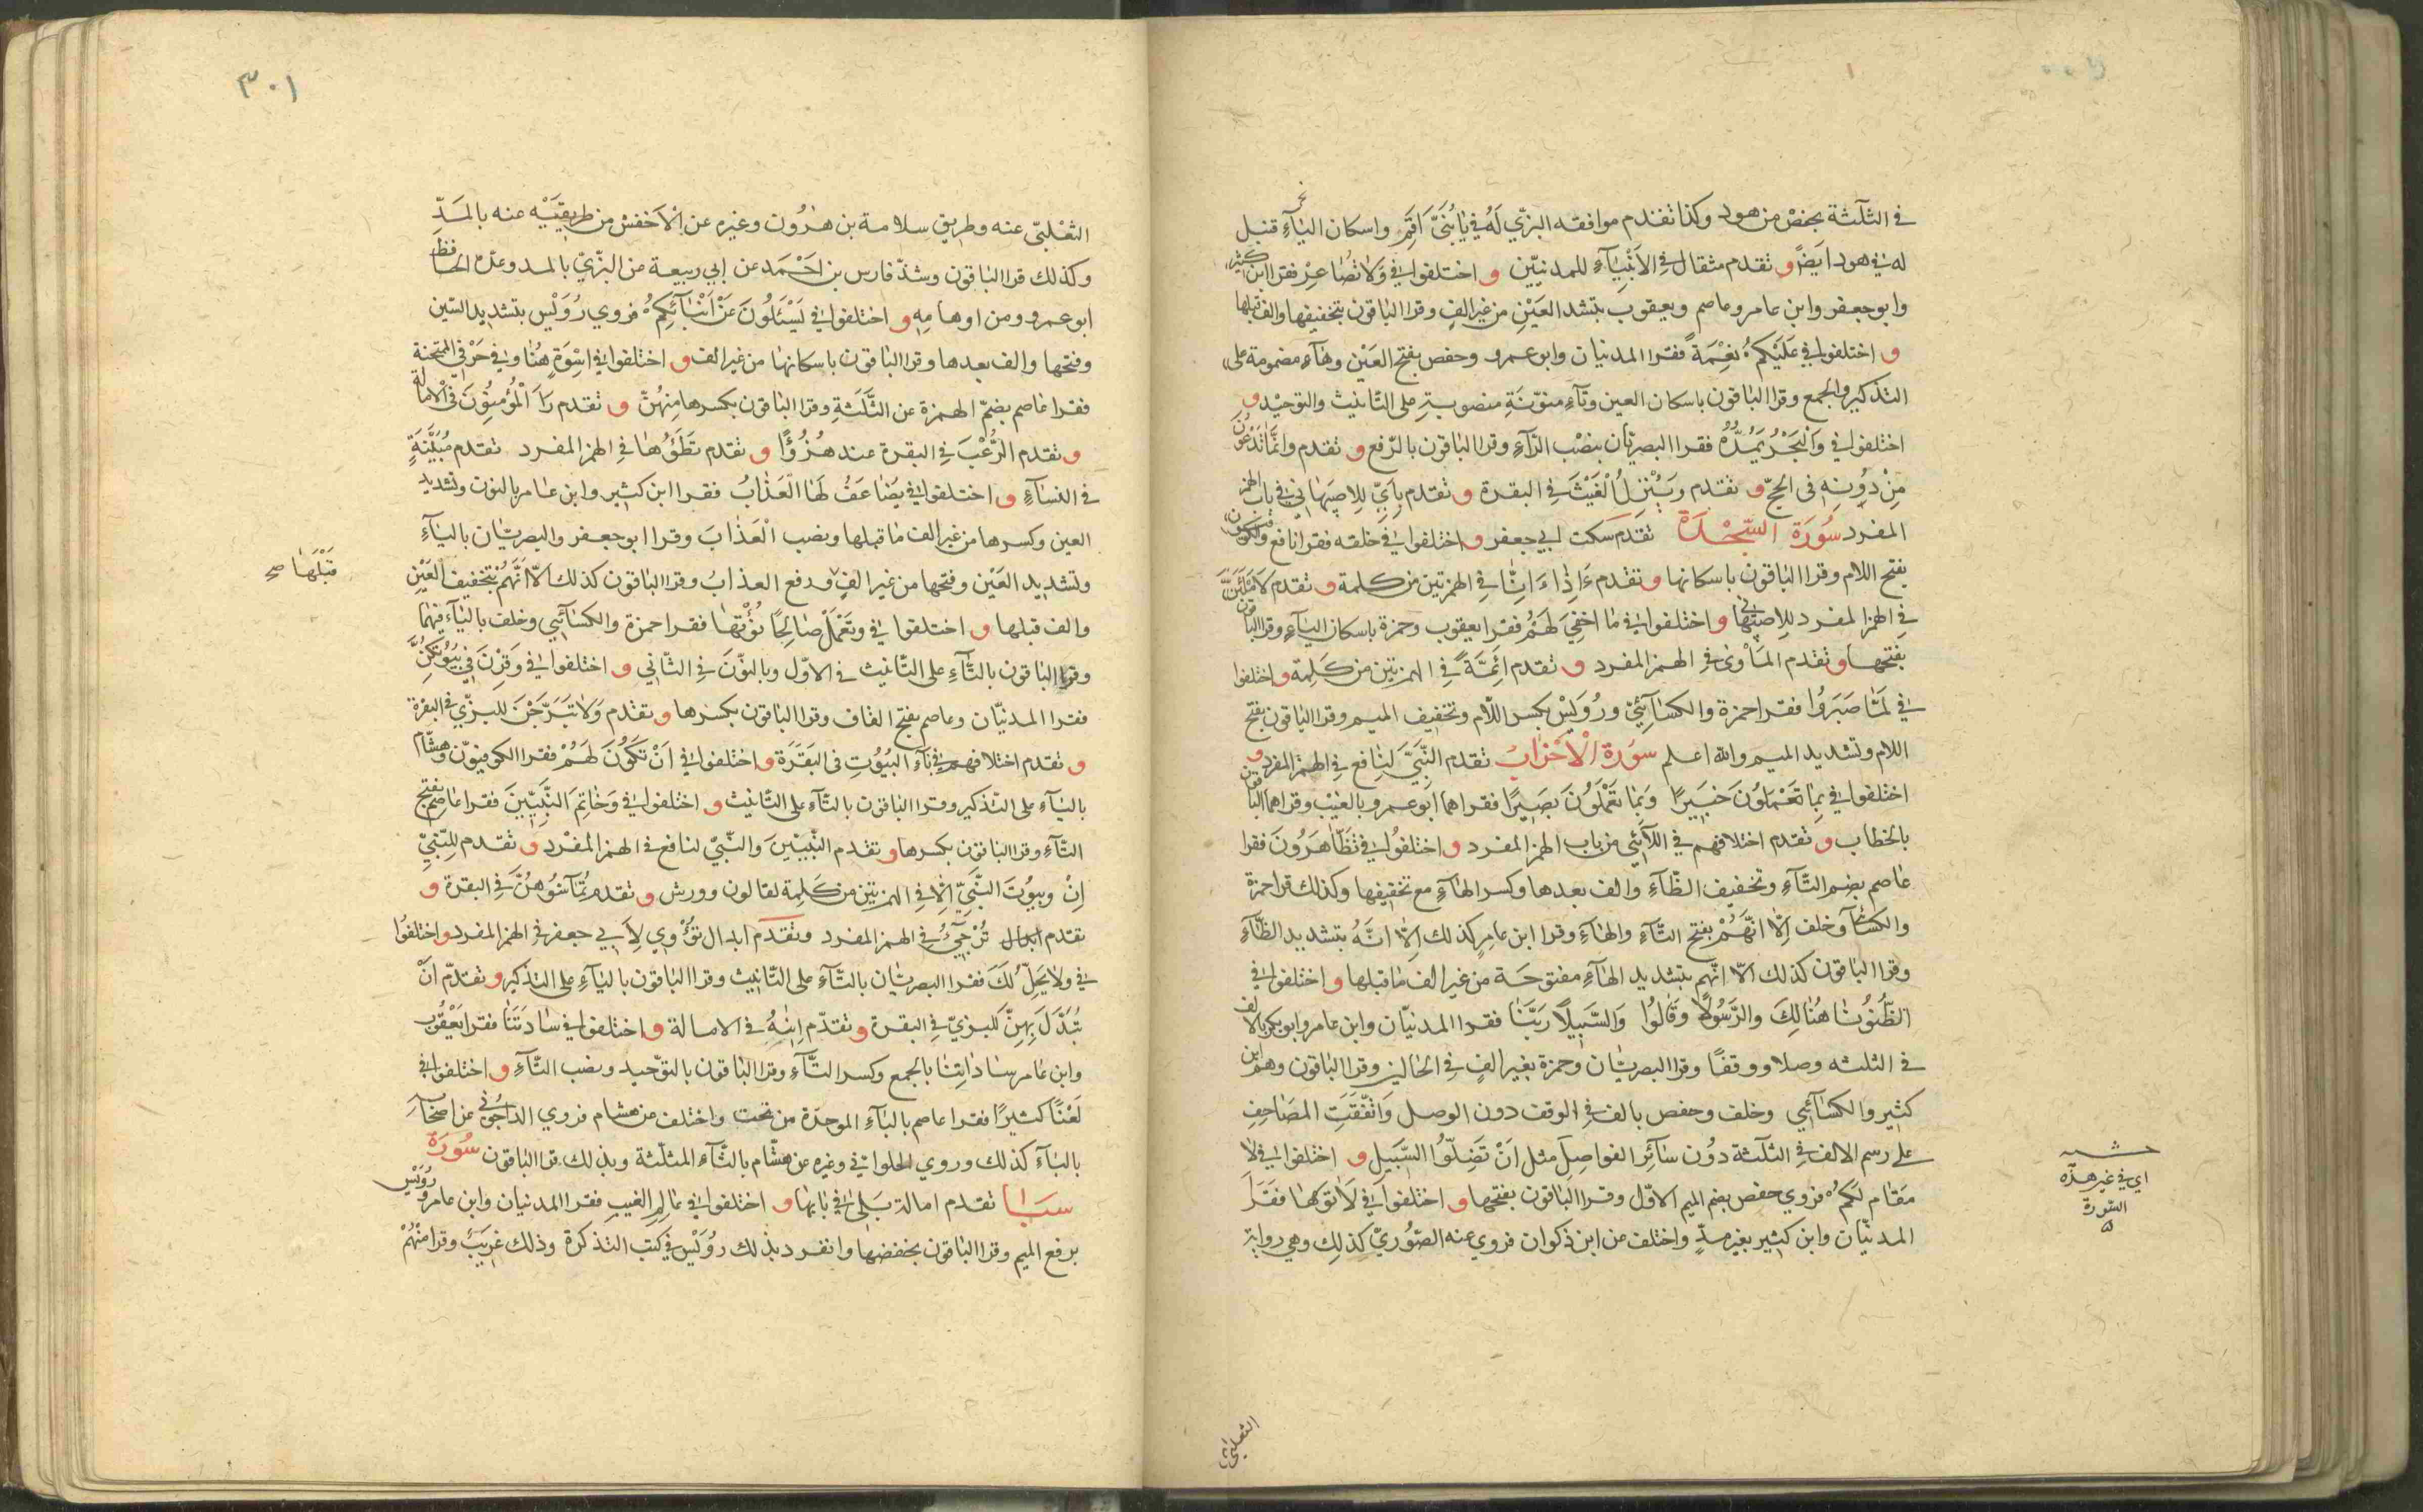 في الثلثة بحفص من هود وكذا تقدم موافقه البزي له في يا بني اقم واسكان الياء قنبل
له في هود ايضا و تقدم مثقال في الانبياء للمدنيين و اختلفوا في ولا تصاعر فقرا ابن كثير
وابو جعفر وابن عامر وعاصم ويعقوب بتشد العين من غير الف وقرا الباقون بتخفيفها والف قبلها
و اختلفوا في عليكم نعمة فقرا المدنيان وابو عمرو وحفص بفتح العين وهاء مضمومة على
التذكير والجمع وقرا الباقون باسكان العين وتاء منونة منصوبة على التانيث والتوحيد و
اختلفوا في والبحر يمده فقرا البصريان بنصب الراء وقرا الباقون بالرفع و تقدم وانما تدعون
من دونه فى الحج و تقدم وينزل الغيث في البقرة و تقدم باي للاصبهاني في باب الهمز
المفرد سورة السجدة تقدم سكت ابي جعفر و اختلفوا في خلقه فقرا نافع والكوفيون
بفتح اللام وقرا الباقون باسكانها و تقدم ءاذا ءانا في الهمزتين من كلمة و تقدم لاملئن
في الهمز المفرد للاصبهاني و اختلفوا في ما اخفي لهم فقرا يعقوب وحمزة باسكان الياء وقرا الباقون
بفتحها و تقدم الماوى في الهمز المفرد و تقدم ائمة في الهمزتين من كلمة و اختلفوا
في لما صبروا فقرا حمزة والكسائي ورويس بكسر اللام وتخفيف الميم وقرا الباقون بفتح
اللام وتشديد الميم والله اعلم سورة الاحزاب تقدم النبي لنافع في الهمز المفرد و
اختلفوا في بما تعملون خبيرا وبما تعملون بصيرا فقراهما ابو عمرو بالغيب وقراهما الباقون
بالخطاب و تقدم اختلافهم في اللائي من باب الهمز المفرد و اختلفوا في تظاهرون فقرا
عاصم بضم التاء وتخفيف الظاء والف بعدها وكسر الهاء مع تخفيفها وكذلك قرا حمزة
والكسائي وخلف الا انهم بفتح التاء والهاء وقرا ابن عامر كذلك الا انه بتشديد الظاء
وقرا الباقون كذلك الا انهم بتشديد الهاء مفتوحة من غير الف ما قبلها و اختلفوا في
الظنونا هنالك والرسولا وقالوا والسبيلا ربنا فقرا المدنيان وابن عامر وابو بكر بالالف
في الثلثه وصلا ووقفا وقرا البصريان وحمزة بغير الف في الحالين وقرا الباقون وهم ابن
كثير والكسائي وخلف وحفص بالف في الوقف دون الوصل واتفقت المصاحف
على رسم الالف في الثلثة دون سائر الفواصل مثل ان تضلوا السبيل و اختلفوا في لا
مقام لكم فروي حفص بضم الميم الاول وقرا الباقون بفتحها و اختلفوا في لاتوها فقرا
المدنيان وابن كثير بغير مد واختلف من ابن ذكوان فروي عنه الصوري كذلك وهي رواية
الثعلبي
اي في غير هذه
السورة
٣٠١
الثعلبي عنه وطريق سلامة بن هرون وغيره عن الاخفش من طريقيه عنه بالمد
وكذلك قرا الباقون وشذ فارس بن احمد عن ابي ربيعة عن البزي بالمد وعد الحافظ
ابو عمرو ومن اوهامه و اختلفوا في يسئلون عن انبائكم فروي رويس بتشديد السين
وفتحها والف بعدها وقرا الباقون باسكانها من غير الف و اختلفوا في اسوة هنا وفي حرفي الممتحنة
فقرا عاصم بضم الهمزة عن الثلثة وقرا الباقون بكسرها منهن و تقدم را المؤمنون في الامالة
و تقدم الرعب في البقرة عند هزؤا و تقدم تطؤها في الهمز المفرد تقدم مبينة
في النساء و اختلفوا في يضاعف لها العذاب فقرا ابن كثير وابن عامر بالنون وتشديد
العين وكسرها من غير الف ما قبلها ونصب العذاب وقرا ابو جعفر والبصريان بالياء
وتشديد العين وفتحها من غير الف ورفع العذاب وقرا الباقون كذلك الا انهم بتخفيف العين
قبلها صح
والف قبلها و اختلفوا في وتعمل صالحا نؤتها فقرا حمزة والكسائي وخلف بالياء فيهما
وقرا الباقون بالتاء على التانيث في الاول وبالنون في الثاني و اختلفوا في وقرن في بيوتكن
فقرا المدنيان وعاصم بفتح القاف وقرا الباقون بكسرها و تقدم ولا تبرجن للبزي في البقرة
و تقدم اختلافهم في باء البيوت فى البقرة و اختلفوا في ان تكون لهم فقرا الكوفيون وهشام
بالياء على التذكير وقرا الباقون بالتاء على التانيث و اختلفوا في وخاتم النبيين فقرا عاصم بفتح
التاء وقرا الباقون بكسرها و تقدم النبيين والنبي لنافع في الهمز المفرد و تقدم للنبي
ان وبيوت النبي الا في الهمزتين من كلمة لقالون وورش و تقدم تماسوهن في البقرة و
تقدم ترجئ في الهمز المفرد وتقدم ابدال تؤوي لابي جعفر في الهمز المفرد و اختلفوا
في ولا يحل لك فقرا البصريان بالتاء على التانيث وقرا الباقون بالياء على التذكير و تقدم ان
تبدل بهن للبزي في البقرة و تقدم انيه في الامالة و اختلفوا في سادتنا فقرا يعقوب
وابن عامر ساداتنا بالجمع وكسر التاء وقرا الباقون بالتوحيد ونصب التاء و اختلفوا في
لعنا كثيرا فقرا عاصم بالباء الموحدة من تحت واختلف عن هشام فروي الداجوني عن اصحابه
بالباء كذلك وروي الحلواني وغيره عن هشام بالثاء المثلثة وبذلك قرا الباقون سورة
سبا تقدم امالة بلى في بابها و اختلفوا في عالم الغيب فقرا المدنيان وابن عامر ورويس
برفع الميم وقرا الباقون بخفضها وانفرد بذلك رويس في كتب التذكرة وذلك غريب وقرا منهم